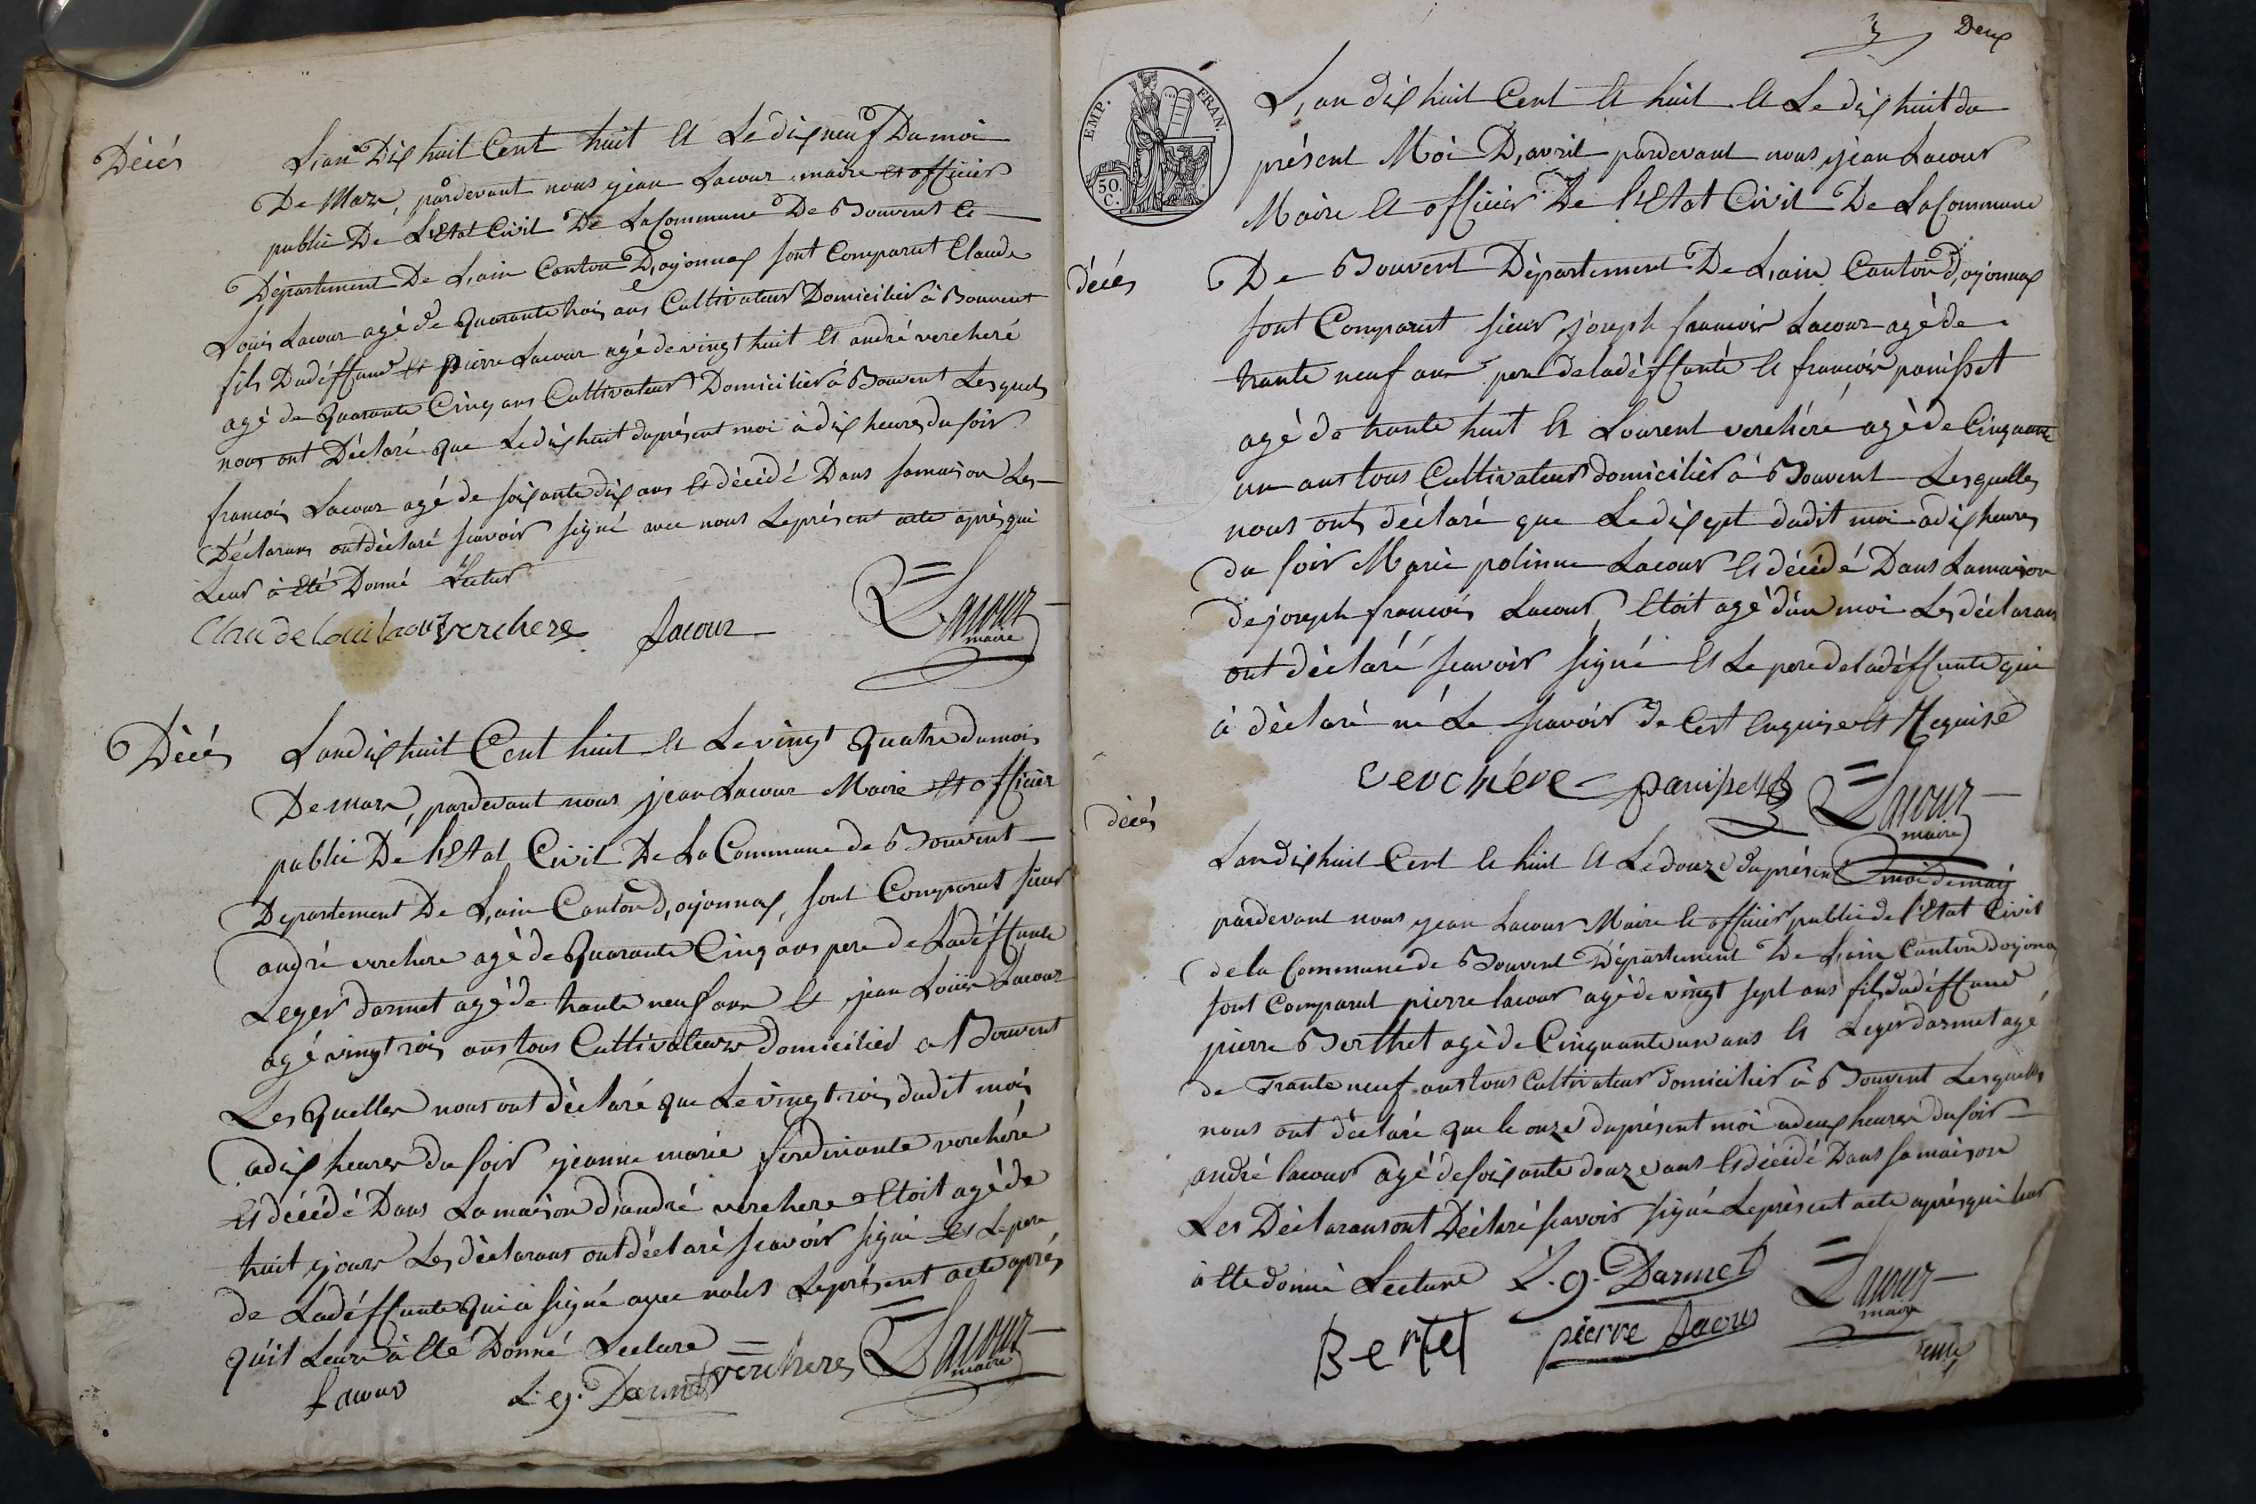 Décés
L,an Dix huit Cent huit Et Le dix neuf Du moi
De Mars, pardevant nous jean Lacour maire et officier
public De L'Etat Civil De La Commune De Bouvent Ce
Département De L,ain Canton D,oyonnax sont Comparut Claude
Louis Lacour agé de quarante trois ans Cultivateur Domicilier à Bouvent
fils Du déffund et pierre Lacour agé de vingt huit Et andré vercheré
agé de quarante Cinq ans Cultivateur Domicilier à Bouvent Lesquels
nous ont Déclaré que Le dix huit du présent moi à dix heures du soir
francois Lacour agé de soixante dix ans Et décédé Dans sa maison Les
Déclarans ont déclaré scavoir signé avec nous Le présent acte après qui
Leur à été Donné Lectur
Claude Loui Lacour verchere Lacour Lacour
maire
Décés
L'an dix huit Cent huit Et Le vingt quatre du mois
De mars, pardevant nous jean Lacour Maire Et officier
public De L'Etat Civil De La Commune de Bouvent
Departement De L,ain Canton d,oyonnax, sont Comparut sieur
andré verchere agé de quarante Cinq ans pere de La déffunte
Leger darmet agé de trante neuf ans Et jean Louis Lacour
agé vingt trois ans tous Cultivateurs domicilied a Bouvent
Les quelles nous ont dèclaré que Le vingt trois dudit mois
a dix heures du soir jeanne marie ferdinante vercheré
Et décédé Dans La maison d'andré verchere Etoit agé de
huit jours Les dèclarans ont déclaré scavoir signé Et Le pere
de La déffunte qui a signé avec nous Le présent acte après
qu'il Leurs à été Donné Lecture
Lacour L. g. Darmet verchere Lacour
maire
3 Deux
EMP. FRAN.
50. C.
décés
L,an dix huit Cent Et huit Et Le dix huit du
présent Moi D,avril pardevant nous jean Lacour
Maire Et officier De L'Etat Civil De La Commune
De Bouvent Département De L,ain Canton D,oyonnax
sont Comparut sieur joseph francois Lacour agé de
trante neuf ans pere de la déffunte Et francois panisset
agé de trante huit Et Lourent verchéré agé de Cinquante
un ans tous Cultivateur domicilier à Bouvent Lesquelles
nous ont déclaré que Le dix sept dudit moi a dix heures
du soir Marie polinne Lacour Et décédé Dans La maison
de joseph francois Lacour, Etoit agé d'un moi Les déclarans
ont dèclaré scavoir signé Et Le pere de la déffunte qui
à dèclaré né Le scavoir de Cest Enquise et Requise
verchere panisset Lacour
maire
décés
L'an dix huit Cent Et huit Et Le douze du présent moi de may
pardevant nous jean Lacour Maire Et officier public de l'Etat Civil
de la Commune de Bouvent Département De L,ain Canton doyona
sont comparut pierre lacour agé de vingt sept ans fils du déffund
pierre Berthet agé de Cinquante un ans Et Leger darmet agé
de Trante neuf ans tous Cultivateur domicilier à Bouvent Lesquelles
nous ont dèclaré que le onze du présent moi a deux heures du soir
andré lacour agé de soixante douze ans Et décédé Dans sa maison
Les Dèclarans ont Dèclaré scavoir signé Le présent acte après qui leur
à Eté donné Lecture L. g. Darmet Lacour
maire
Bertet pierre Lacour